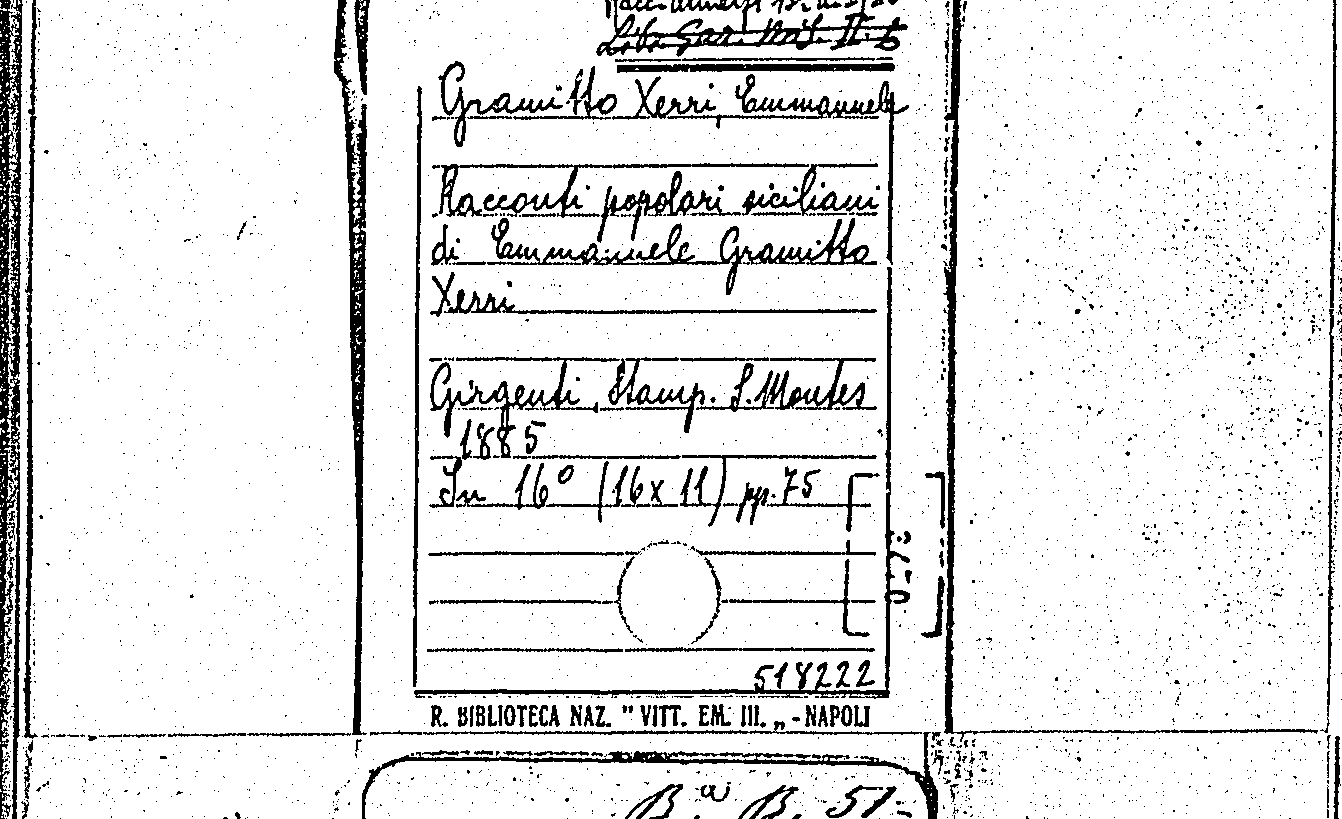 Libr. Gar. Naf. II. 6
Gramitto Xerri, Emmanuele
Racconti popolari siciliani
di Emmanuele Gramitto
Xerri
Girgenti, Stamp. S. Montes
1885
In 16° (16 x 11) pp. 75
518222
R. BIBLIOTECA NAZ. " VITT. EM. III. „ - NAPOLI
B. a) B. 51-